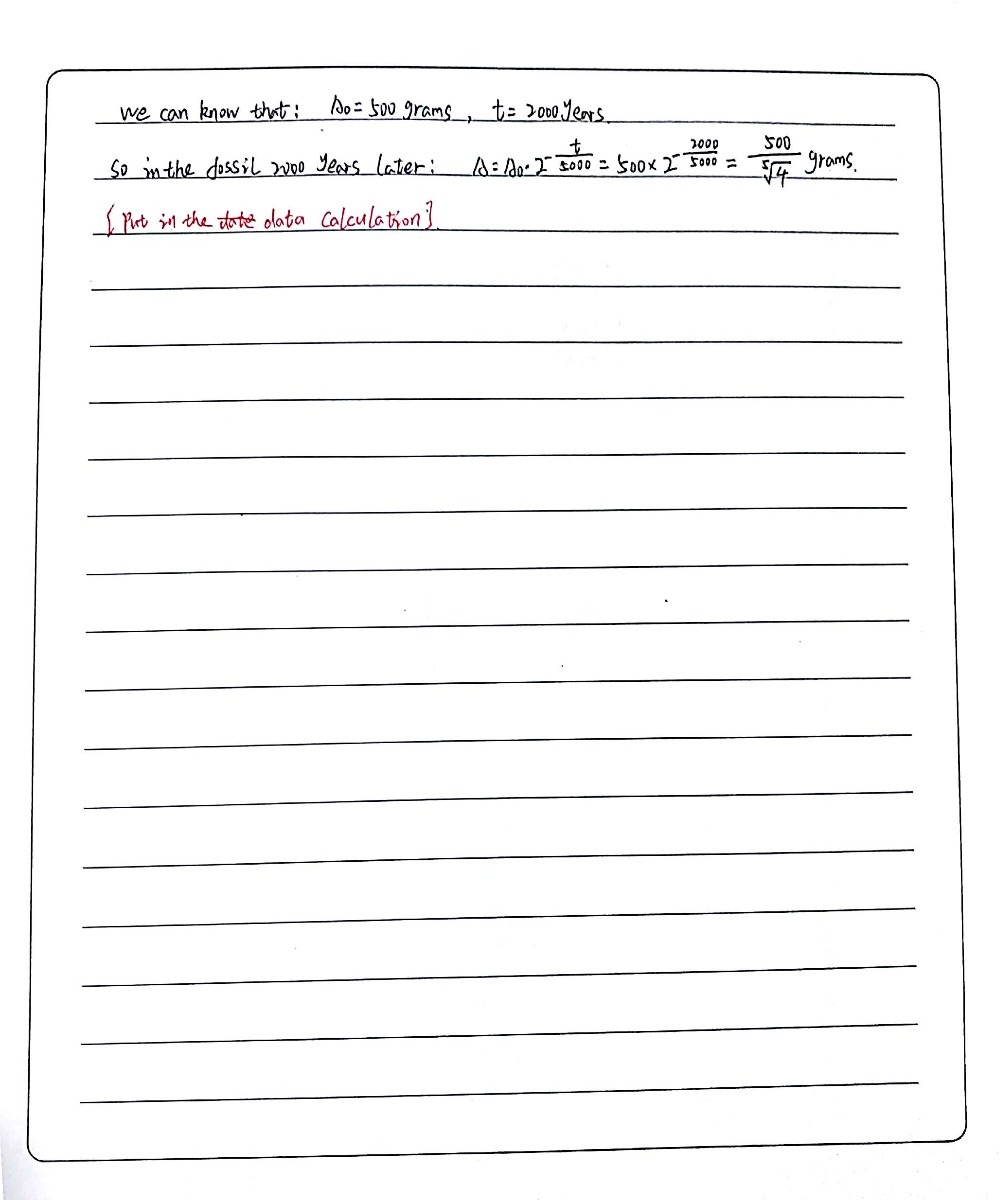 we can know that: A₀ = 500 grams, t = 2000 years.
so in the fossil 2000 years later: A = A₀·2^(-t/5000) = 500 × 2^(-2000/5000) = 500/⁵√4 grams.
{Put in the date data calculation}.